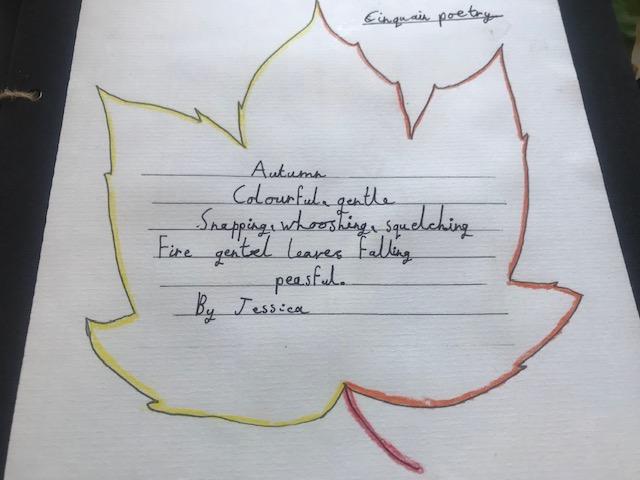 Cinquain poetry
Autumn
Colourful, gentle
Snapping, whooshing, squelching
Fire gentel leaves falling
peasful.
By Jessica